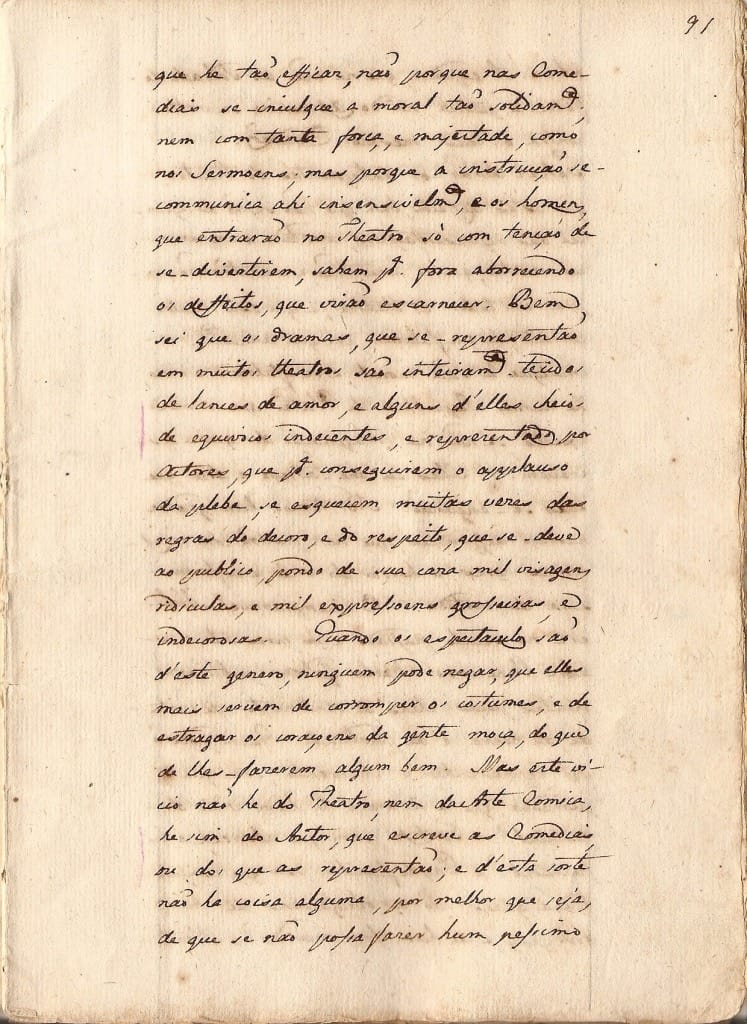 91
que he taõ efficaz, naõ porque nas Come-
dias se-inculque a moral taõ solidam.e,
nem com tanta força, e majestade, como
nos Sermoens; mas porque a instrucçaõ se-
communica ahi insensivelm.e, e os homens,
que entraraõ no Theatro só com tençaõ de
se-divertirem, sahem p.a fora aborrecendo
os deffeitos, que viraõ escarnecer. Bem
sei que os dramas, que se-representaõ
em muitos theatros saõ inteiram.e tecidos
de lances de amor, e alguns d'elles cheios
de equivocos indecentes, e representados por
Actores, que p.a conseguirem o applauso
da plebe, se esquecem muitas vezes das
regras do decoro, e do respeito, que se-deve
ao publico, pondo de sua cara mil visagens
ridiculas, e mil expressoens grosseiras, e
indecorosas. Quando os espectaculos saõ
d'este genero, ninguem pode negar, que elles
mais servem de corromper os costumes, e de
estragar os coraçoens da gente moça, do que
de lhes-fazerem algum bem. Mas este vi-
cio naõ he do Theatro, nem da Arte Comica,
he sim do Autor, que escreve as Comedias,
ou dos que as representaõ; e d'esta sorte
naõ ha coisa alguma, por melhor que seja,
de que se naõ possa fazer hum pessimo